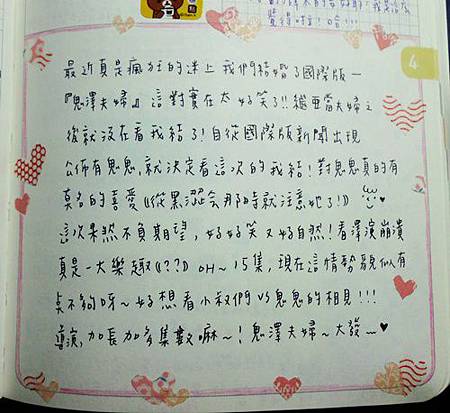 覺得啦！哈!!!
4
最近真是瘋狂的迷上我們結婚了國際版－
『鬼澤夫婦』這對實在太好笑了!!繼亞當夫婦之
後就沒在看我結了！自從國際版新聞出現
公佈有鬼鬼，就決定看這次的我結！對鬼鬼真的有
莫名的喜愛(《從黑澀会那時就注意她了！》)
這次果然不負期望，好好笑又好自然！看澤演崩潰
真是一大樂趣(《??》) OH~15集，現在這情勢貌似有
点不夠呀~好想看小叔們VS鬼鬼的相見!!!
導演，加長加多集數嘛~！鬼澤夫婦~大發~♥